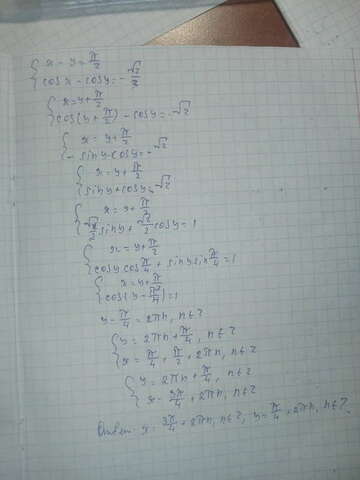 { x - y = π/2
{ cos x - cos y = -√2/2
{ x = y + π/2
{ cos(y + π/2) - cos y = -√2
{ x = y + π/2
{ - sin y - cos y = -√2
{ x = y + π/2
{ sin y + cos y = √2
{ x = y + π/2
{ √2/2 sin y + √2/2 cos y = 1
{ x = y + π/2
{ cos y cos π/4 + sin y sin π/4 = 1
{ x = y + π/2
{ cos(y - π/4) = 1
y - π/4 = 2πn, n∈Z
{ y = 2πn + π/4, n∈Z
{ x = π/4 + π/2 + 2πn, n∈Z
{ y = 2πn + π/4, n∈Z
{ x = 3π/4 + 2πn, n∈Z
Ответ: x = 3π/4 + 2πn, n∈Z, y = π/4 + 2πn, n∈Z.